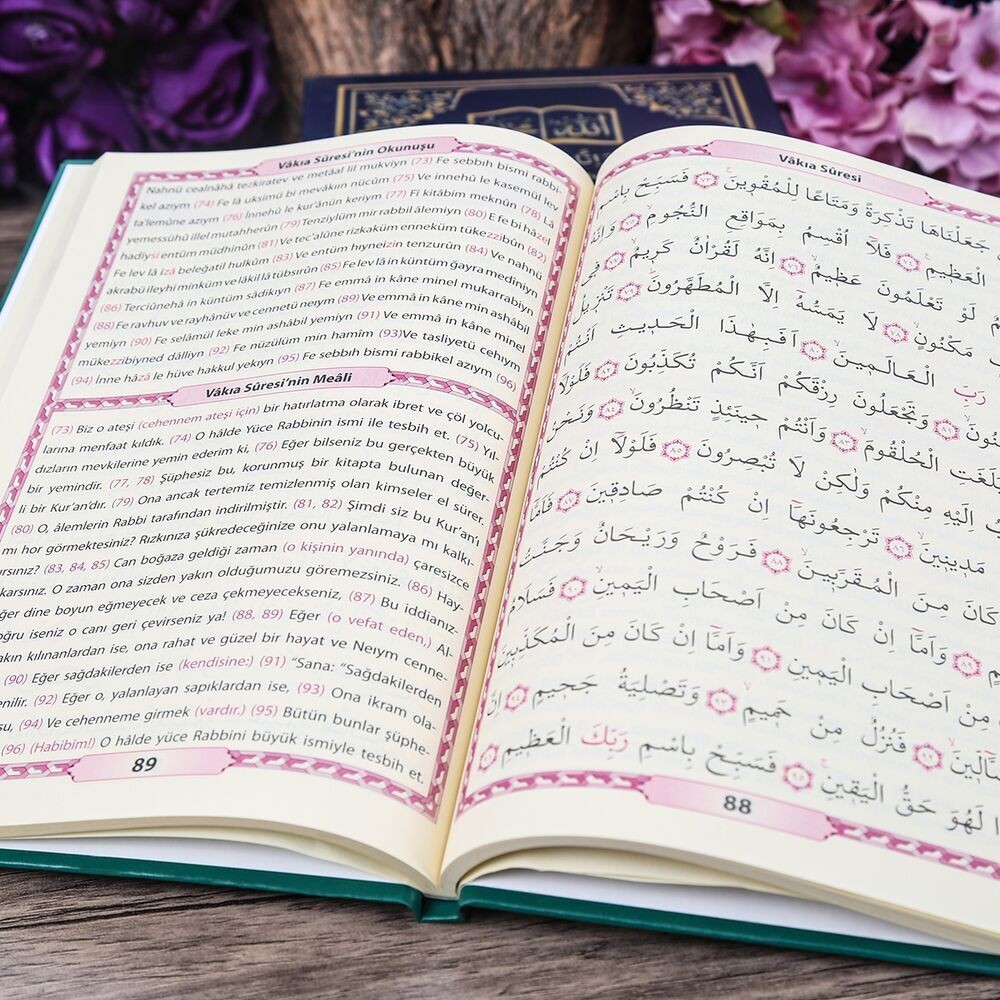 الله
Vâkıa Sûresi'nin Okunuşu
Nahnü cealnâhâ tezkiratev ve metâal lil mukviyn (73) Fe sebbih bismi rabbi-
kel azıym (74) Fe lâ uksimü bi mevâkıın nücûm (75) Ve innehû le kasemül lev
ta'lemûne azıym (76) İnnehû le kur'ânün keriym (77) Fî kitâbim meknûn (78) Lâ
yemessühû illel mutahherûn (79) Tenziylüm mir rabbil âlemiyn (80) E fe bi hâzel
hadiysi entüm müdhinûn (81) Ve tec'alûne rizkaküm enneküm tükezzibûn (82)
Fe lev lâ izâ beleğatil hulkûm (83) Ve entüm hıyneizin tenzurûn (84) Ve nahnü
akrabü ileyhi minküm ve lâkil lâ tübsırûn (85) Fe lev lâ in küntüm ğayra mediniyn
(86) Terciûnehâ in küntüm sâdikıyn (87) Fe emmâ in kâne minel mukarrabiyn
(88) Fe ravhuv ve rayhânüv ve cennetü neıym (89) Ve emmâ in kâne min ashâbil
yemiyn (90) Fe selâmül leke min ashâbil yemiyn (91) Ve emmâ in kâne minel
mükezzibiyned dâlliyn (92) Fe nüzülüm min hamîm (93)Ve tasliyetü cehıym
(94) İnne hâzâ le hüve hakkul yekıyn (95) Fe sebbih bismi rabbikel azıym (96)
Vâkıa Sûresi'nin Meâli
(73) Biz o ateşi (cehennem ateşi için) bir hatırlatma olarak ibret ve çöl yolcu-
larına menfaat kıldık. (74) O hâlde Yüce Rabbinin ismi ile tesbih et. (75) Yıl-
dızların mevkilerine yemin ederim ki, (76) Eğer bilseniz bu gerçekten büyük
bir yemindir. (77, 78) Şüphesiz bu, korunmuş bir kitapta bulunan değer-
li bir Kur'an'dır. (79) Ona ancak tertemiz temizlenmiş olan kimseler el sürer.
(80) O, âlemlerin Rabbi tarafından indirilmiştir. (81, 82) Şimdi siz bu Kur'an'ı
mı hor görmektesiniz? Rızkınıza şükredeceğinize onu yalanlamaya mı kalkı-
rsınız? (83, 84, 85) Can boğaza geldiği zaman (o kişinin yanında) çaresizce
karsınız. O zaman ona sizden yakın olduğumuzu göremezsiniz. (86) Hay-
ğer dine boyun eğmeyecek ve ceza çekmeyecekseniz, (87) Bu iddianız-
oğru iseniz o canı geri çevirseniz ya! (88, 89) Eğer (o vefat eden,) Al-
akın kılınanlardan ise, ona rahat ve güzel bir hayat ve Neıym cenne-
(90) Eğer sağdakilerden ise (kendisine:) (91) "Sana: "Sağdakilerden
enilir. (92) Eğer o, yalanlayan sapıklardan ise, (93) Ona ikram ola-
su, (94) Ve cehenneme girmek (vardır.) (95) Bütün bunlar şüphe-
(96) (Habibim!) O hâlde yüce Rabbini büyük ismiyle tesbih et.
89
Vâkıa Sûresi
جَعَلْنَاهَا تَذْكِرَةً وَمَتَاعًا لِلْمُقْوِينَ ﴿٧٣﴾ فَسَبِّحْ بِاسْمِ
الْعَظِيمِ ﴿٧٤﴾ فَلَآ اُقْسِمُ بِمَوَاقِعِ النُّجُومِ ﴿٧٥﴾ وَاِنَّهُ
لَوْ تَعْلَمُونَ عَظِيمٌ ﴿٧٦﴾ اِنَّهُ لَقُرْاٰنٌ كَرِيمٌ ﴿٧٧﴾ فِي
مَكْنُونٍ ﴿٧٨﴾ لَا يَمَسُّهُٓ اِلَّا الْمُطَهَّرُونَ ﴿٧٩﴾ تَنْزِيلٌ
رَبِّ الْعَالَمِينَ ﴿٨٠﴾ اَفَبِهٰذَا الْحَدِيثِ اَنْتُمْ
وَتَجْعَلُونَ رِزْقَكُمْ اَنَّكُمْ تُكَذِّبُونَ ﴿٨٢﴾ فَلَوْلَآ
بَلَغَتِ الْحُلْقُومَ ﴿٨٣﴾ وَاَنْتُمْ حِينَئِذٍ تَنْظُرُونَ ﴿٨٤﴾ وَنَحْنُ
اِلَيْهِ مِنْكُمْ وَلٰكِنْ لَا تُبْصِرُونَ ﴿٨٥﴾ فَلَوْلَآ اِنْ كُنْتُمْ
مَدِينِينَ ﴿٨٦﴾ تَرْجِعُونَهَآ اِنْ كُنْتُمْ صَادِقِينَ ﴿٨٧﴾ فَاَمَّآ
كَانَ مِنَ الْمُقَرَّبِينَ ﴿٨٨﴾ فَرَوْحٌ وَرَيْحَانٌ وَجَنَّتُ
وَاَمَّآ اِنْ كَانَ مِنْ اَصْحَابِ الْيَمِينِ ﴿٩٠﴾ فَسَلَامٌ
مِنْ اَصْحَابِ الْيَمِينِ ﴿٩١﴾ وَاَمَّآ اِنْ كَانَ مِنَ الْمُكَذِّبِينَ
فَنُزُلٌ مِنْ حَمِيمٍ ﴿٩٣﴾ وَتَصْلِيَةُ جَحِيمٍ ﴿٩٤﴾ اِنَّ
لَهُوَ حَقُّ الْيَقِينِ ﴿٩٥﴾ فَسَبِّحْ بِاسْمِ رَبِّكَ الْعَظِيمِ ﴿٩٦﴾
88